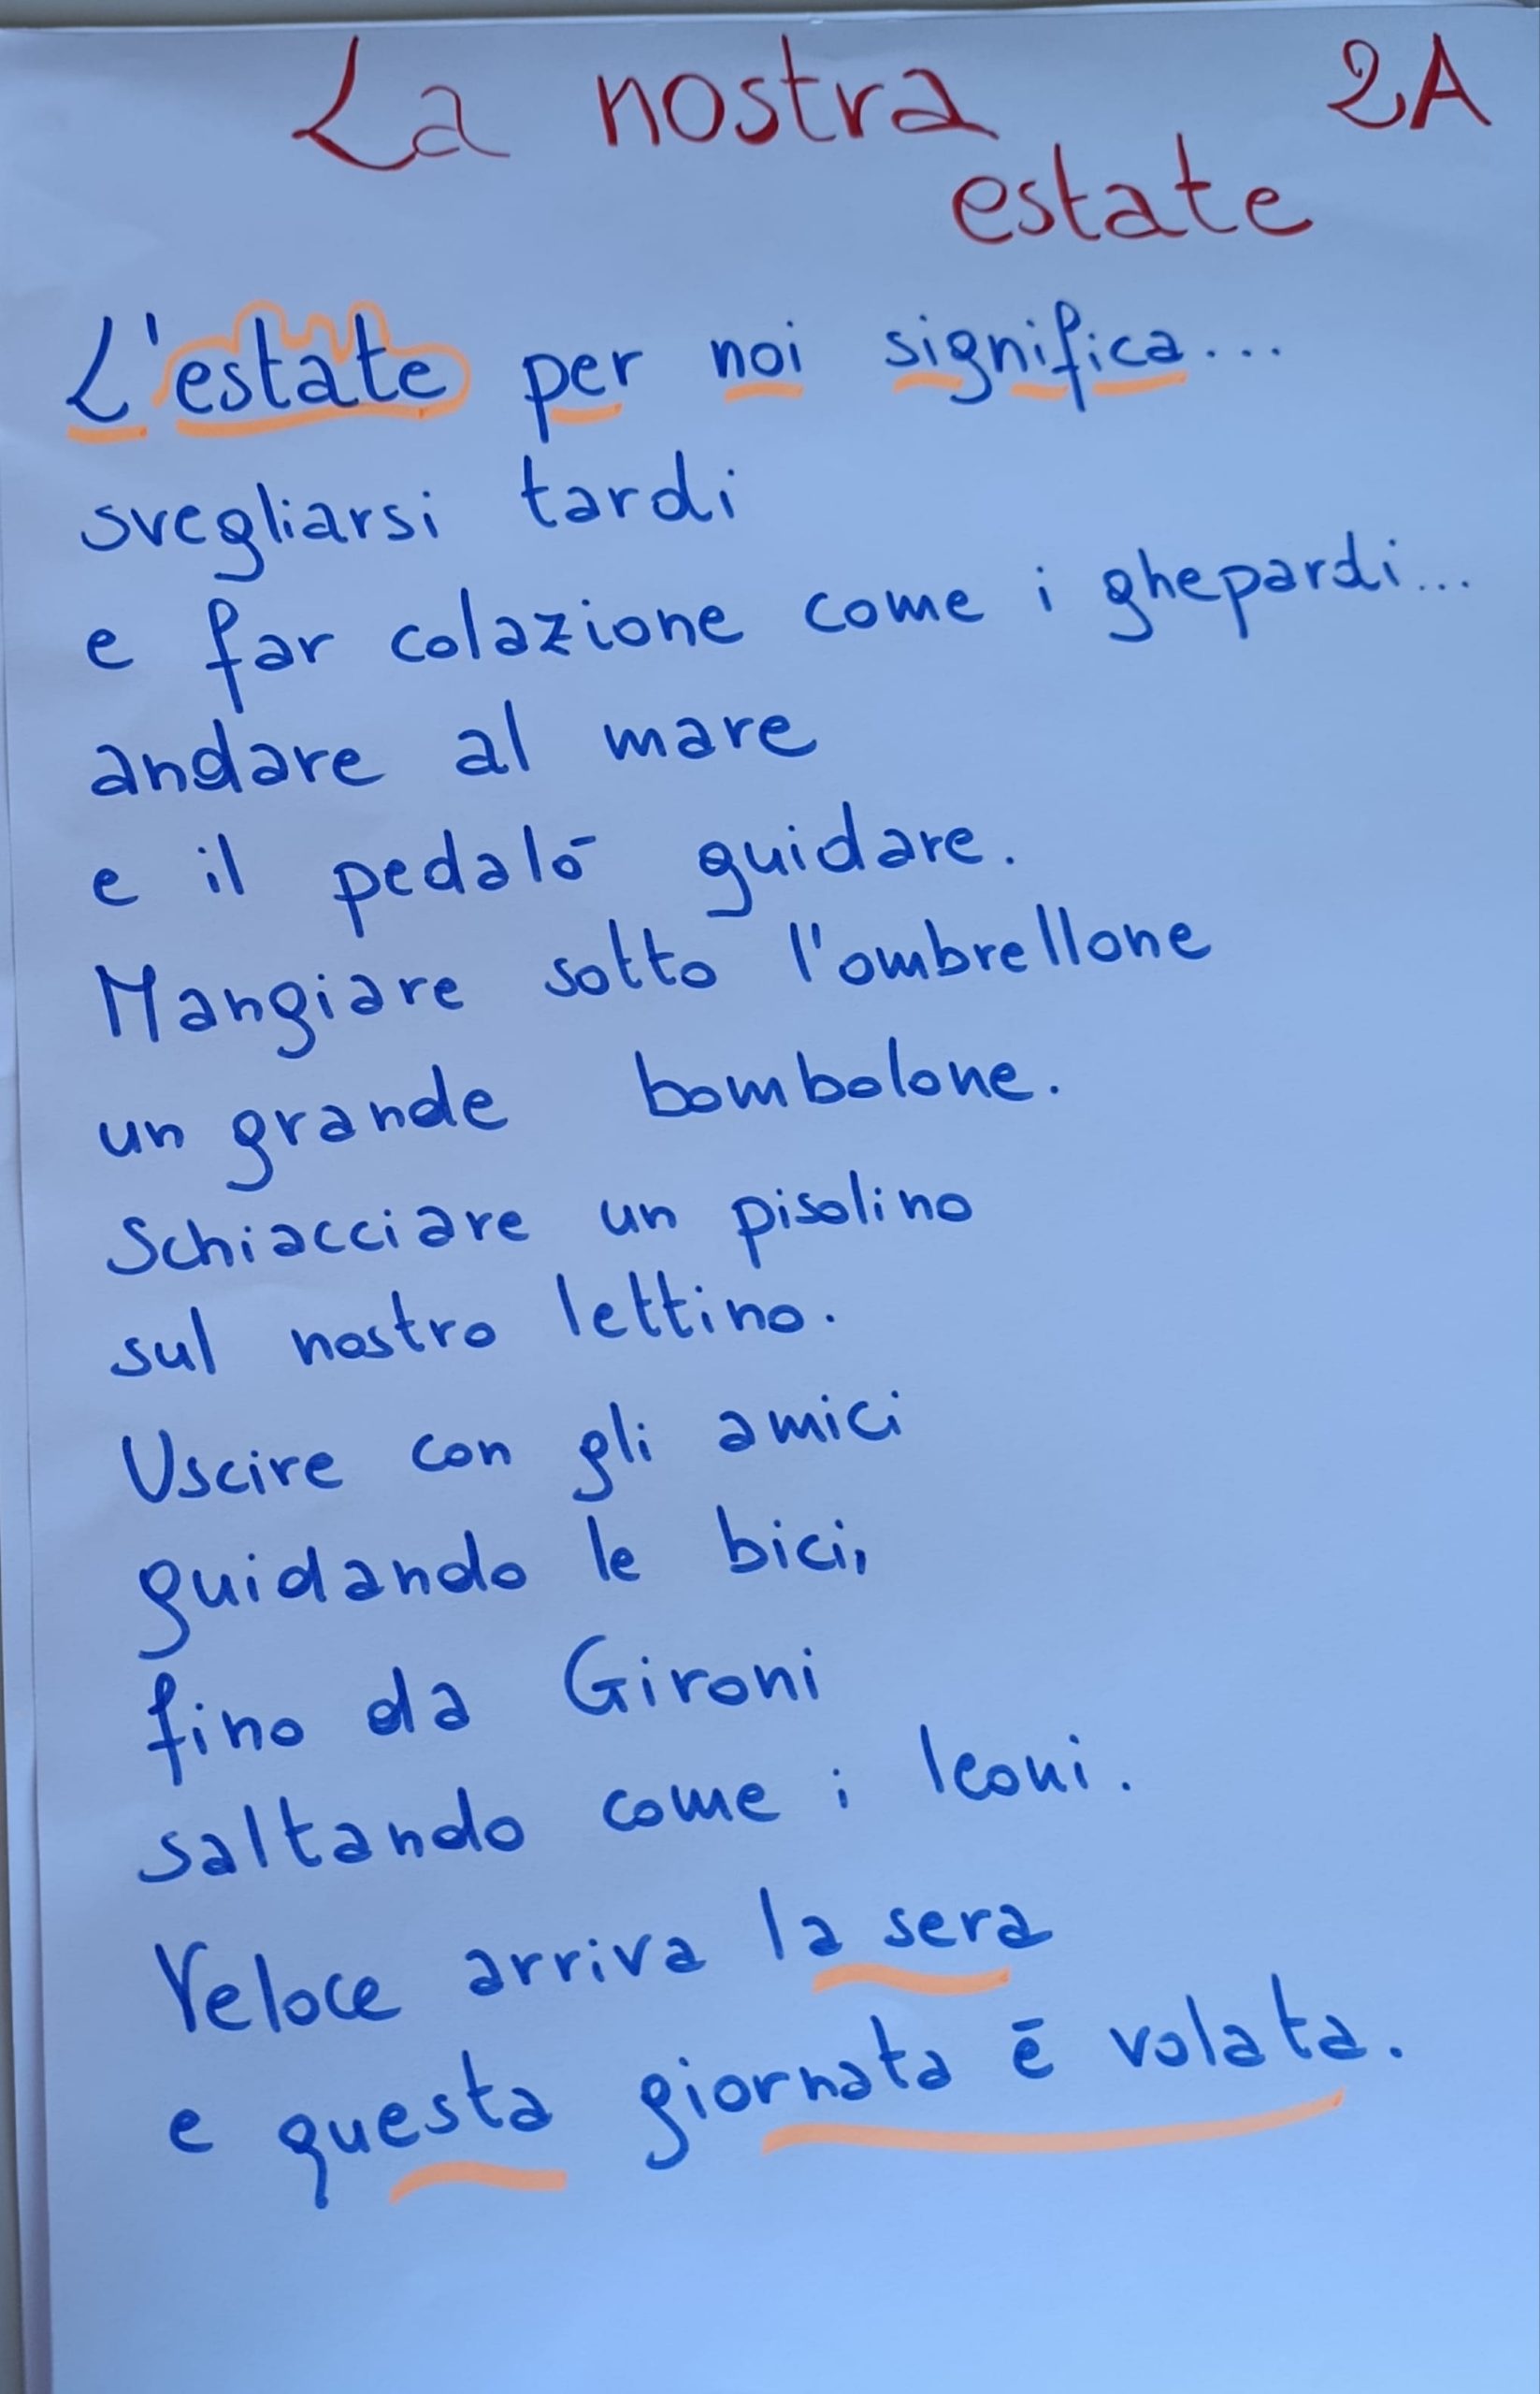 La nostra 2A
estate
L'estate per noi significa...
svegliarsi tardi
e far colazione come i ghepardi...
andare al mare
e il pedalò guidare.
Mangiare sotto l'ombrellone
un grande bombolone.
Schiacciare un pisolino
sul nostro lettino.
Uscire con gli amici
guidando le bici,
fino da Gironi
saltando come i leoni.
Veloce arriva la sera
e questa giornata è volata.